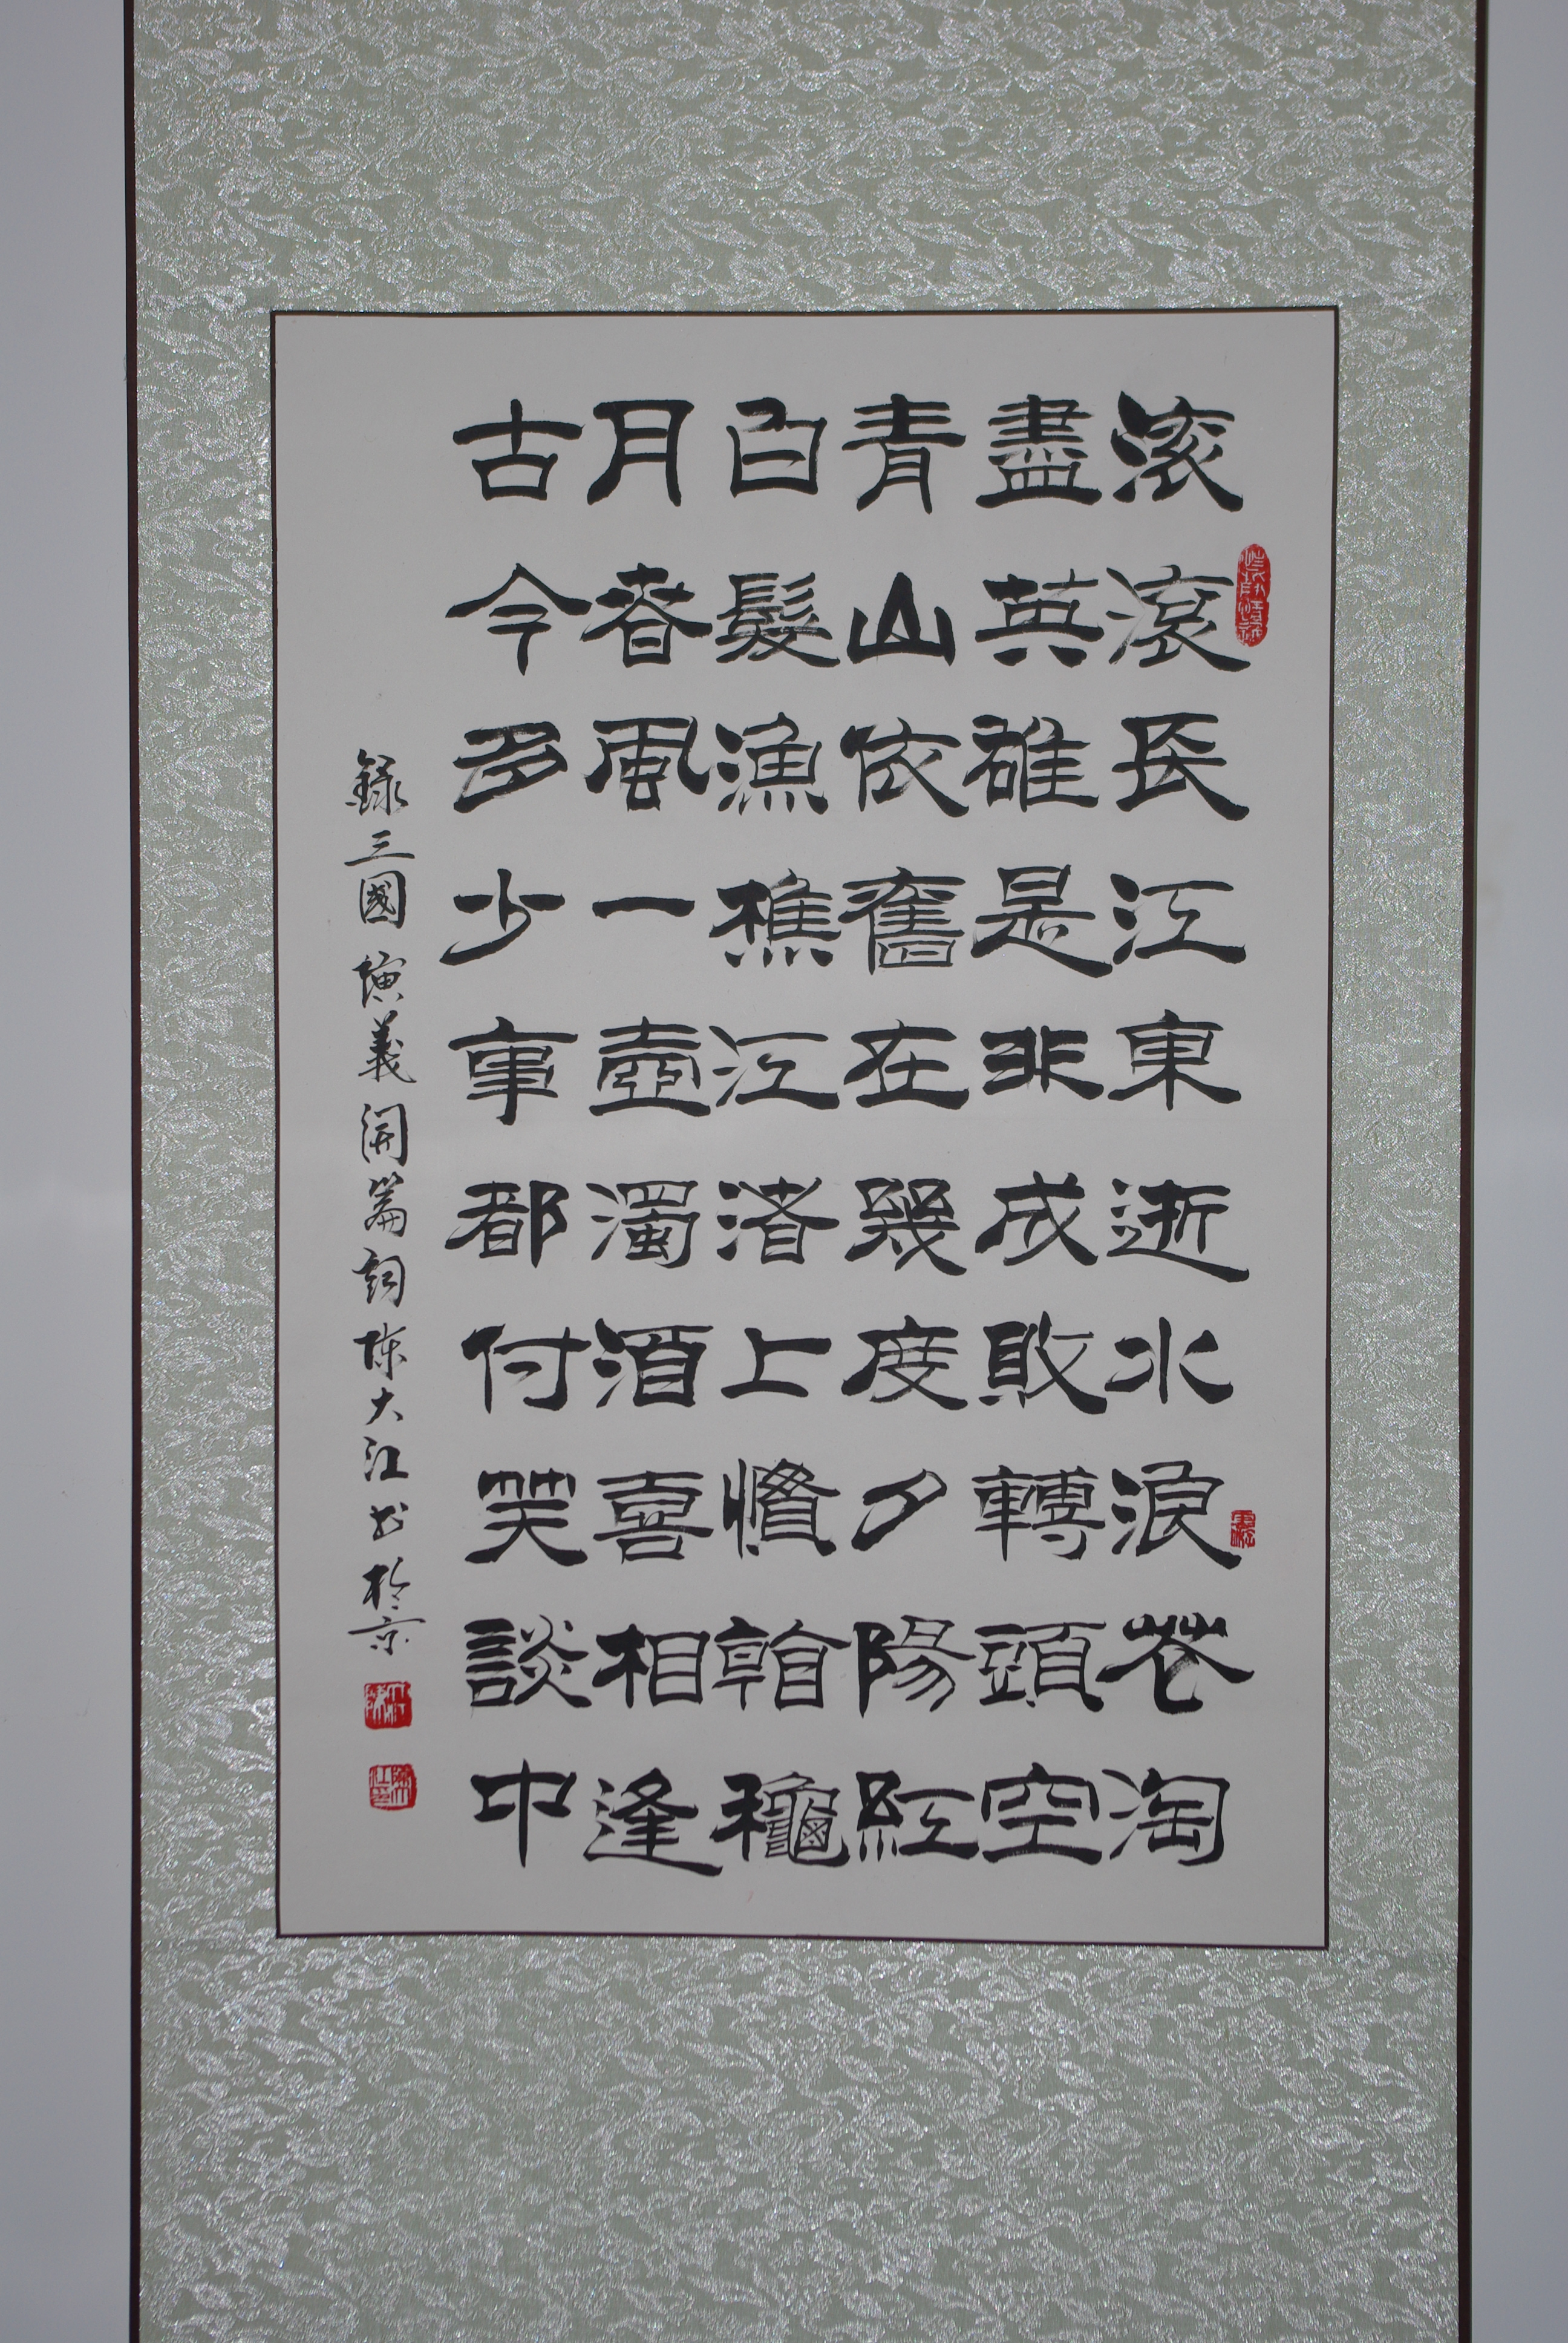 滚滚長江東逝水浪花淘
盡英雄是非成敗轉頭空
青山依舊在幾度夕陽紅
白髮漁樵江渚上慣看秋
月春風一壺濁酒喜相逢
古今多少事都付笑談中
錄三國演義開篇詞陳大江書於京